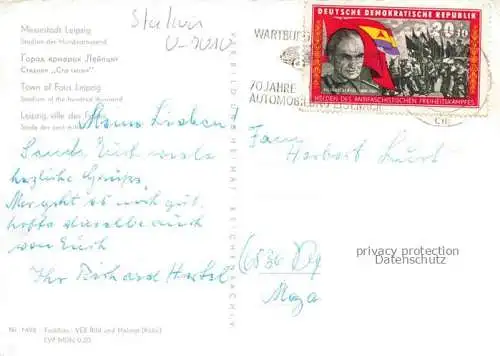 Messestadt Leipzig
Stadion der Hunderttausend
Город ярмарок Лейпциг
Стадион „Сто тысяч"
Town of Fairs Leipzig
Stadium of the hundred thousand
Leipzig, ville des
Stade des cent mille
Stadion
V-2010
VEB BILD UND HEIMAT REICHENBACH/V.
WARTBURG
70 JAHRE
AUTOMOBILBAU EISENACH
DEUTSCHE DEMOKRATISCHE REPUBLIK
20+10
HELDEN DES ANTIFASCHISTISCHEN FREIHEITSKAMPFES
Meine Lieben
Sende Euch viele
herzliche Grüße,
Mir geht es noch gut,
hoffe dasselbe auch
von Euch
Ihr Richard Hertel
Fam
Herbert
privacy protection
Datenschutz
Nr. 1498 Foto: VEB Bild und Heimat
EVP MDN 0,20